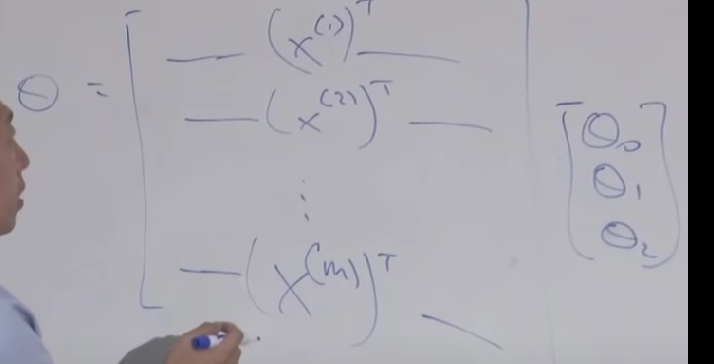 θ = [ — (x⁽¹⁾)ᵀ —
— (x⁽²⁾)ᵀ —
⋮
— (x⁽ᵐ⁾)ᵀ — ]
[ θ₀
θ₁
θ₂ ]